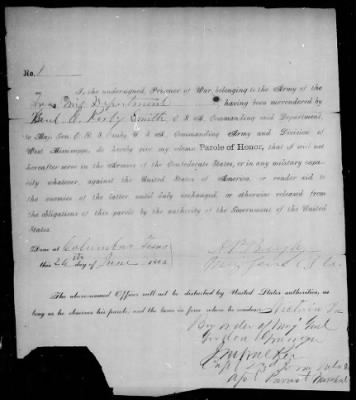 No. 1
I, the undersigned, Prisoner of War, belonging to the Army of the
Trans Miss Department having been surrendered by
Genl E. Kirby Smith, C. S. A., Commanding said Department,
to Maj. Gen. E. R. S. Canby, U. S. A., Commanding Army and Division of
West Mississippi, do hereby give my solemn Parole of Honor, that I will not
hereafter serve in the Armies of the Confederate States, or in any military capa-
city whatever, against the United States of America, or render aid to
the enemies of the latter until duly exchanged, or otherwise released from
the obligations of this parole by the authority of the Government of the United
States.
Done at Columbus Texas
this 26th day of June 1865
The above-named Officer will not be disturbed by United States authorities, as
long as he observes his parole, and the laws in force where he resides.
By order of Maj Genl
Gordon Granger